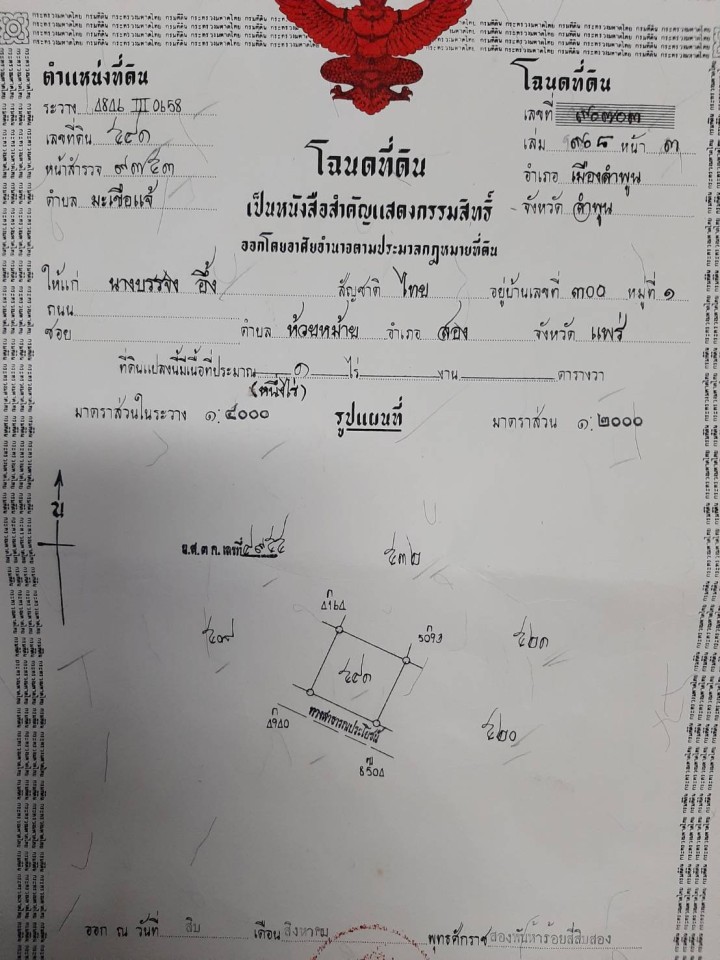 ตำแหน่งที่ดิน
ระวาง 4846 III 0658
เลขที่ดิน ๕๙๑
หน้าสำรวจ ๙๓๕๓
ตำบล มะเขือแจ้
โฉนดที่ดิน
เลขที่
เล่ม ๙๐๘ หน้า ๓
อำเภอ เมืองลำพูน
จังหวัด ลำพูน
โฉนดที่ดิน
เป็นหนังสือสำคัญแสดงกรรมสิทธิ์
ออกโดยอาศัยอำนาจตามประมวลกฎหมายที่ดิน
ให้แก่ นางบรรจง อึ้ง สัญชาติ ไทย อยู่บ้านเลขที่ ๓๐๐ หมู่ที่ ๑
ถนน
ซอย ตำบล ห้วยหม้าย อำเภอ สอง จังหวัด แพร่
ที่ดินแปลงนี้มีเนื้อที่ประมาณ ๑ ไร่ งาน ตารางวา
(หนึ่งไร่)
มาตราส่วนในระวาง ๑:๔๐๐๐ รูปแผนที่ มาตราส่วน ๑:๒๐๐๐
น
น.ส.๓ ก. เลขที่
๕๓๒
๕๙๑
๕๒๑
๕๒๐
ทางสาธารณประโยชน์
ออก ณ วันที่ สิบ เดือน สิงหาคม พุทธศักราช สองพันห้าร้อยสี่สิบสอง